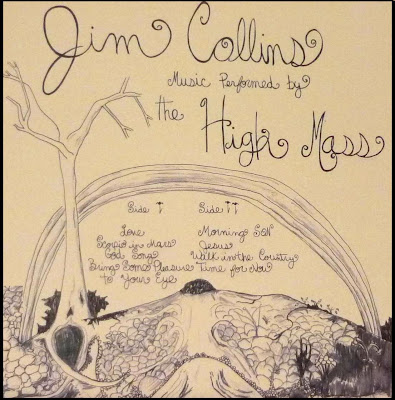 Jim Collins
Music Performed by
the High Mass
Side †
Love
Scorpio in Mars
God Song
Bring Some Pleasure
To Your Eye
Side ††
Morning SON
Jesus
Walk in the Country
Time for Now